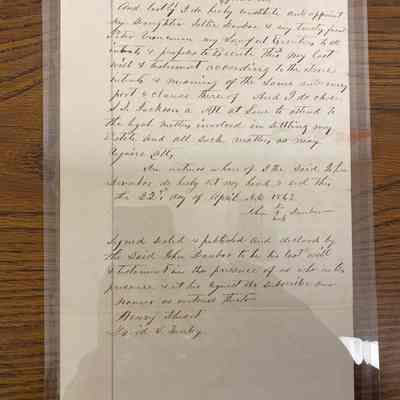 And lastly I do hereby constitute and appoint
my Daughter Dunbar & my friend
Peter my lawful Executors to all
intents & purposes to Execute this my last
will & testament according to the true
intents & meaning of the same and every
part & clause thereof And I do
Jackson at Law to attend to
the legal matters involved in settling my
Estate and all such matters as may
require att,
In witness where of I the Said John
Dunbar do hereby set my hand & seal this
the 22d day of April AD 1862
John Dunbar
Signed Seald & published and declared by
the Said John Dunbar to be his last will
& testament in the presence of us who in the
presence & at his request do subscribe our
Names as witness thereto
Henry
David S.